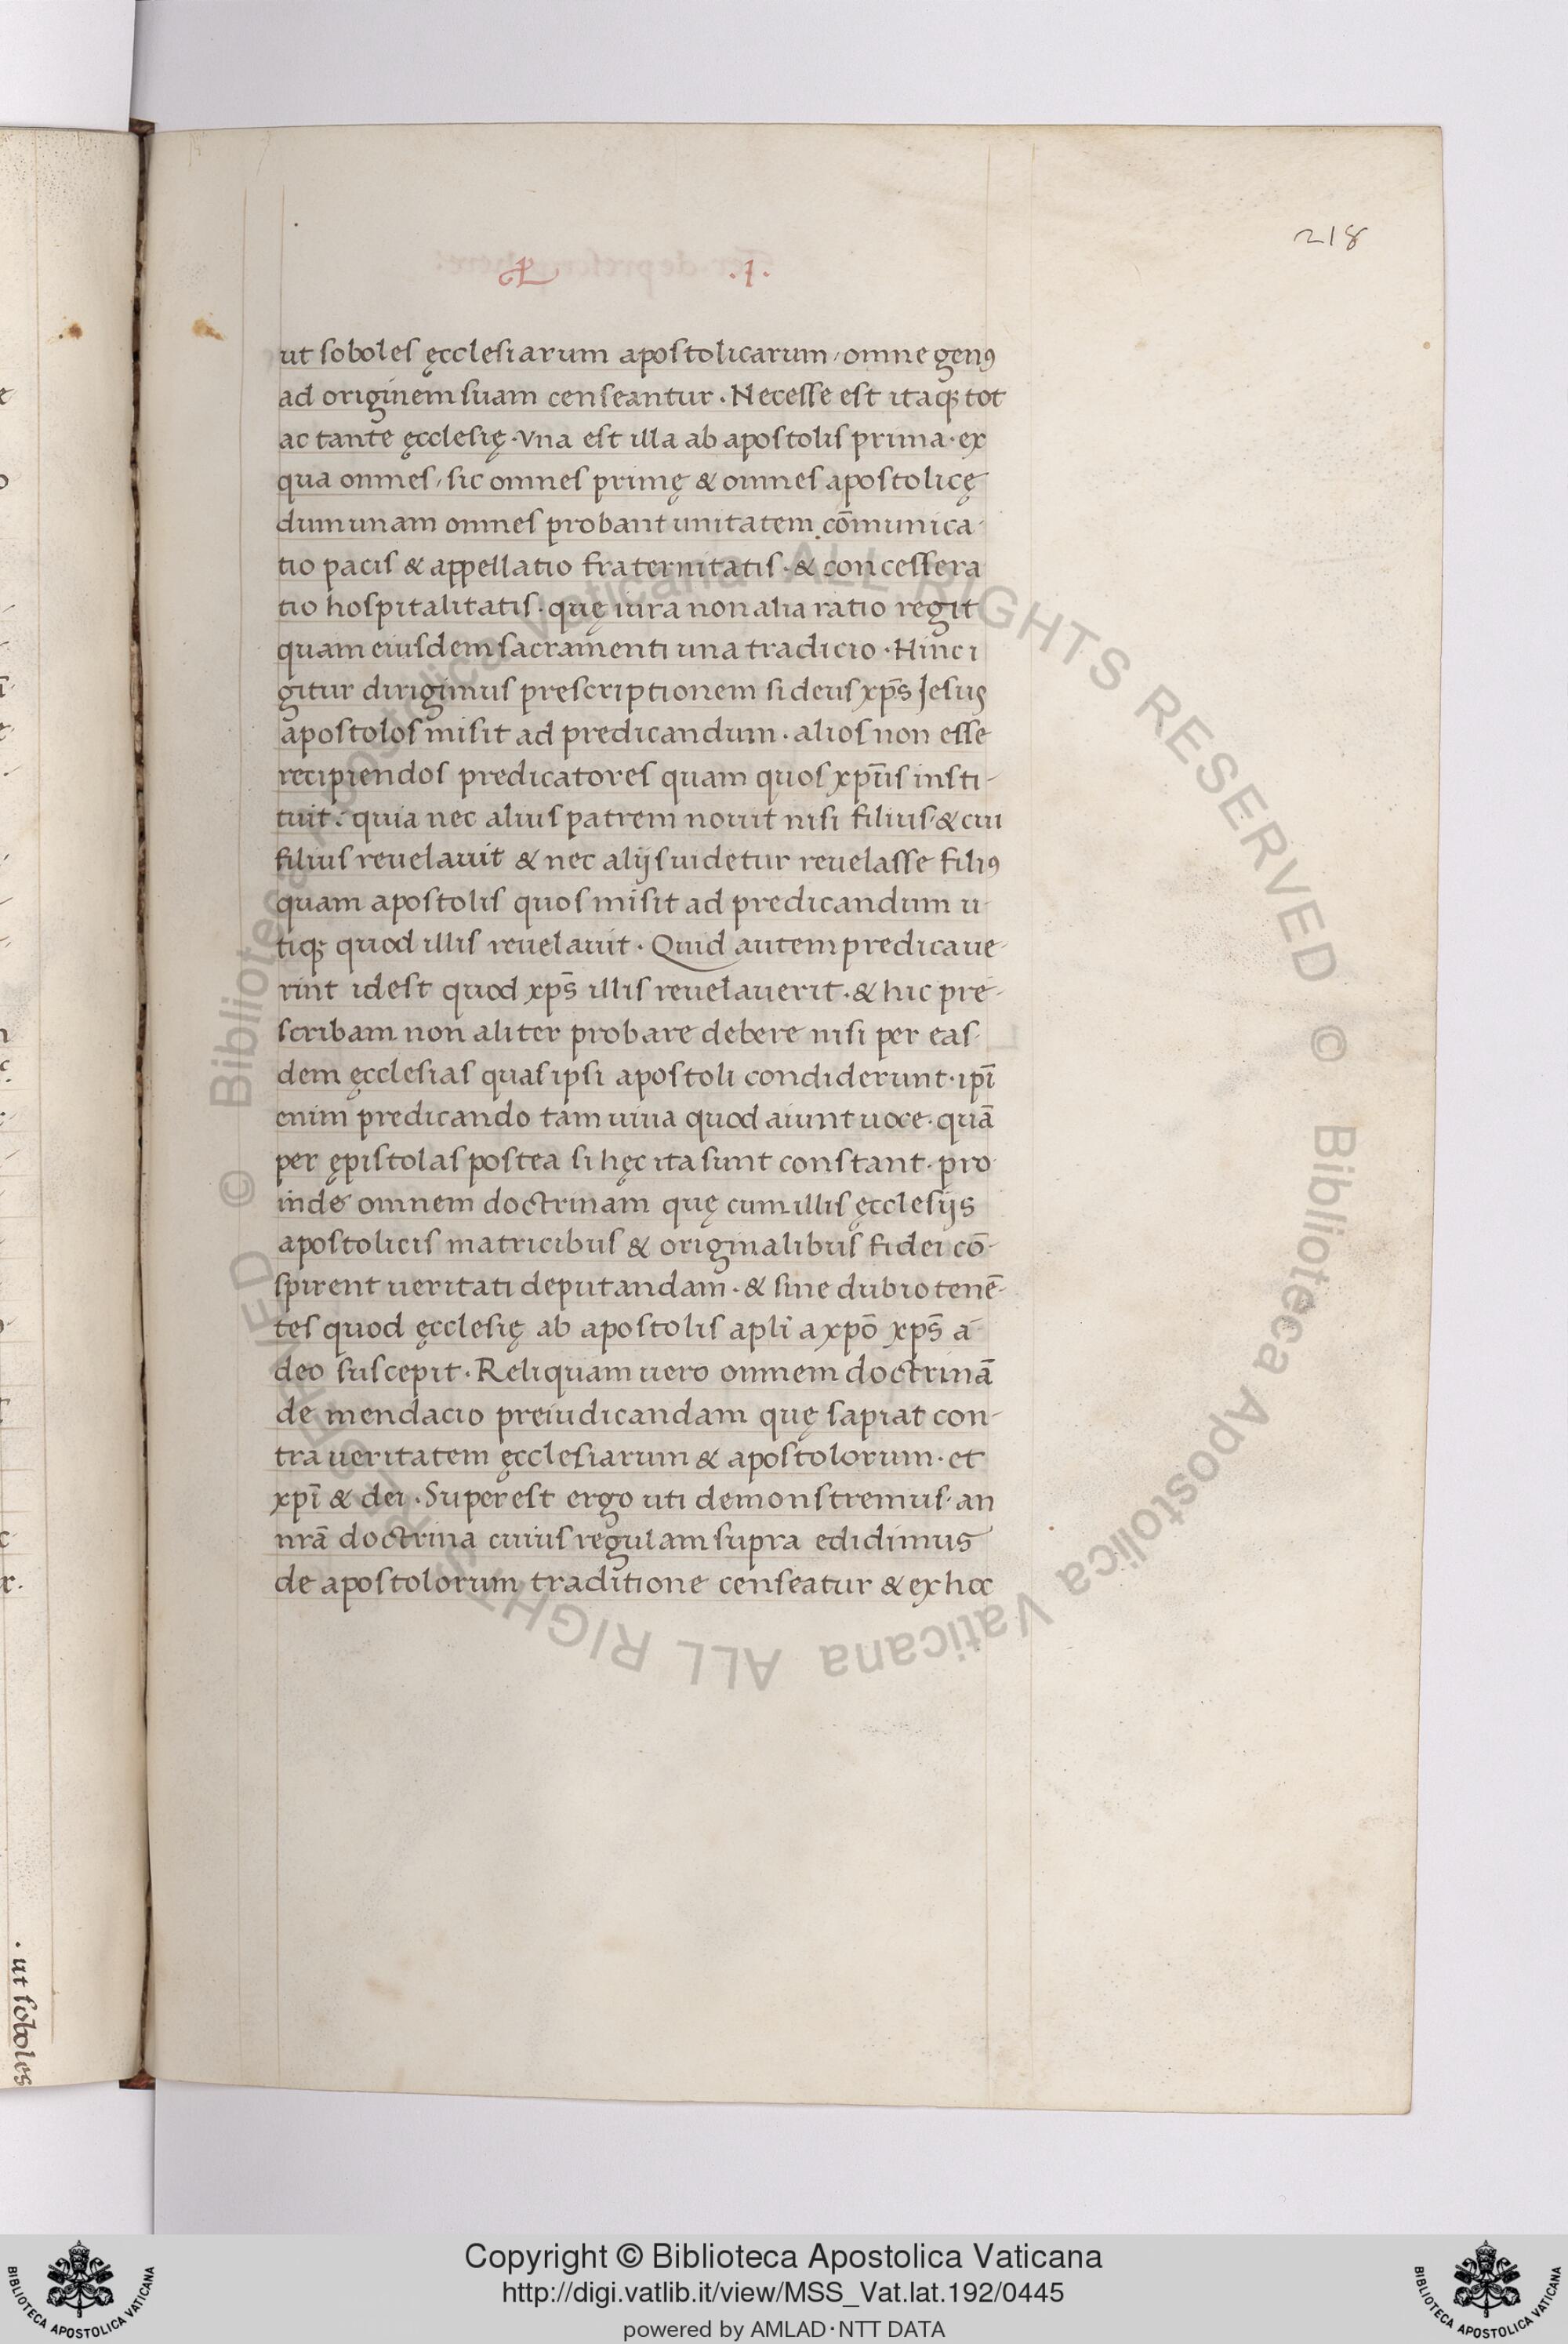 218
.I.
ut soboles ęcclesiarum apostolicarum, omne genꝰ
ad originem suam censeantur. Necesse est itaqꝫ tot
ac tante ęcclesię. Vna est illa ab apostolis prima. ex
qua omnes, sic omnes primę & omnes apostolicę
dum unam omnes probant unitatem. cōmunica-
tio pacis & appellatio fraternitatis. & concessera
tio hospitalitatis. quę iura non alia ratio regit
quam eiusdem sacramenti una tradicio. Hinc i
gitur dirigimus prescriptionem si deus xp̄s Jesus
apostolos misit ad predicandum. alios non esse
recipiendos predicatores quam quos xp̄us insti-
tuit: quia nec alius patrem nouit nisi filius & cui
filius reuelauit & nec alijs uidetur reuelasse filiꝰ
quam apostolis quos misit ad predicandum u-
tiqꝫ quod illis reuelauit. Quid autem predicaue-
rint idest quod xp̄s illis reuelauerit. & hic pre-
scribam non aliter probare debere nisi per eas-
dem ęcclesias quas ipsi apostoli condiderunt. ip̄i
enim predicando tam uiua quod aiunt uoce. quā
per ępistolas postea si hęc ita sunt constant. pro
inde omnem doctrinam quę cum illis ęcclesijs
apostolicis matricibus & originalibus fidei cō-
spirent ueritati deputandam. & sine dubio tenē-
tes quod ęcclesię ab apostolis apl̄i a xp̄o xp̄s a
deo suscepit. Reliquam uero omnem doctrinā
de mendacio preiudicandam quę sapiat con-
tra ueritatem ęcclesiarum & apostolorum. et
xp̄i & dei. Superest ergo uti demonstremus. an
nrā doctrina cuius regulam supra edidimus
de apostolorum traditione censeatur & ex hoc
. ut soboles
© Biblioteca Apostolica Vaticana ALL RIGHTS RESERVED © Biblioteca Apostolica Vaticana ALL RIGHTS RESERVED
Copyright © Biblioteca Apostolica Vaticana
http://digi.vatlib.it/view/MSS_Vat.lat.192/0445
powered by AMLAD·NTT DATA
BIBLIOTECA APOSTOLICA VATICANA
BIBLIOTECA APOSTOLICA VATICANA